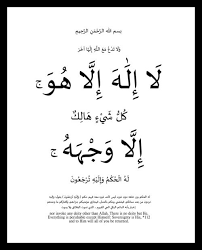 بسم الله الرحمن الرحيم
وَلَا تَدْعُ مَعَ اللَّهِ إِلَٰهًا آخَرَ
لَا إِلَٰهَ إِلَّا هُوَ ۚ
كُلُّ شَيْءٍ هَالِكٌ
إِلَّا وَجْهَهُ ۚ
لَهُ الْحُكْمُ وَإِلَيْهِ تُرْجَعُونَ
other than Allah, There is no deity but He,
Everything is perishable except Himself, Sovereignty is His,
and to Him will all of you be returned.